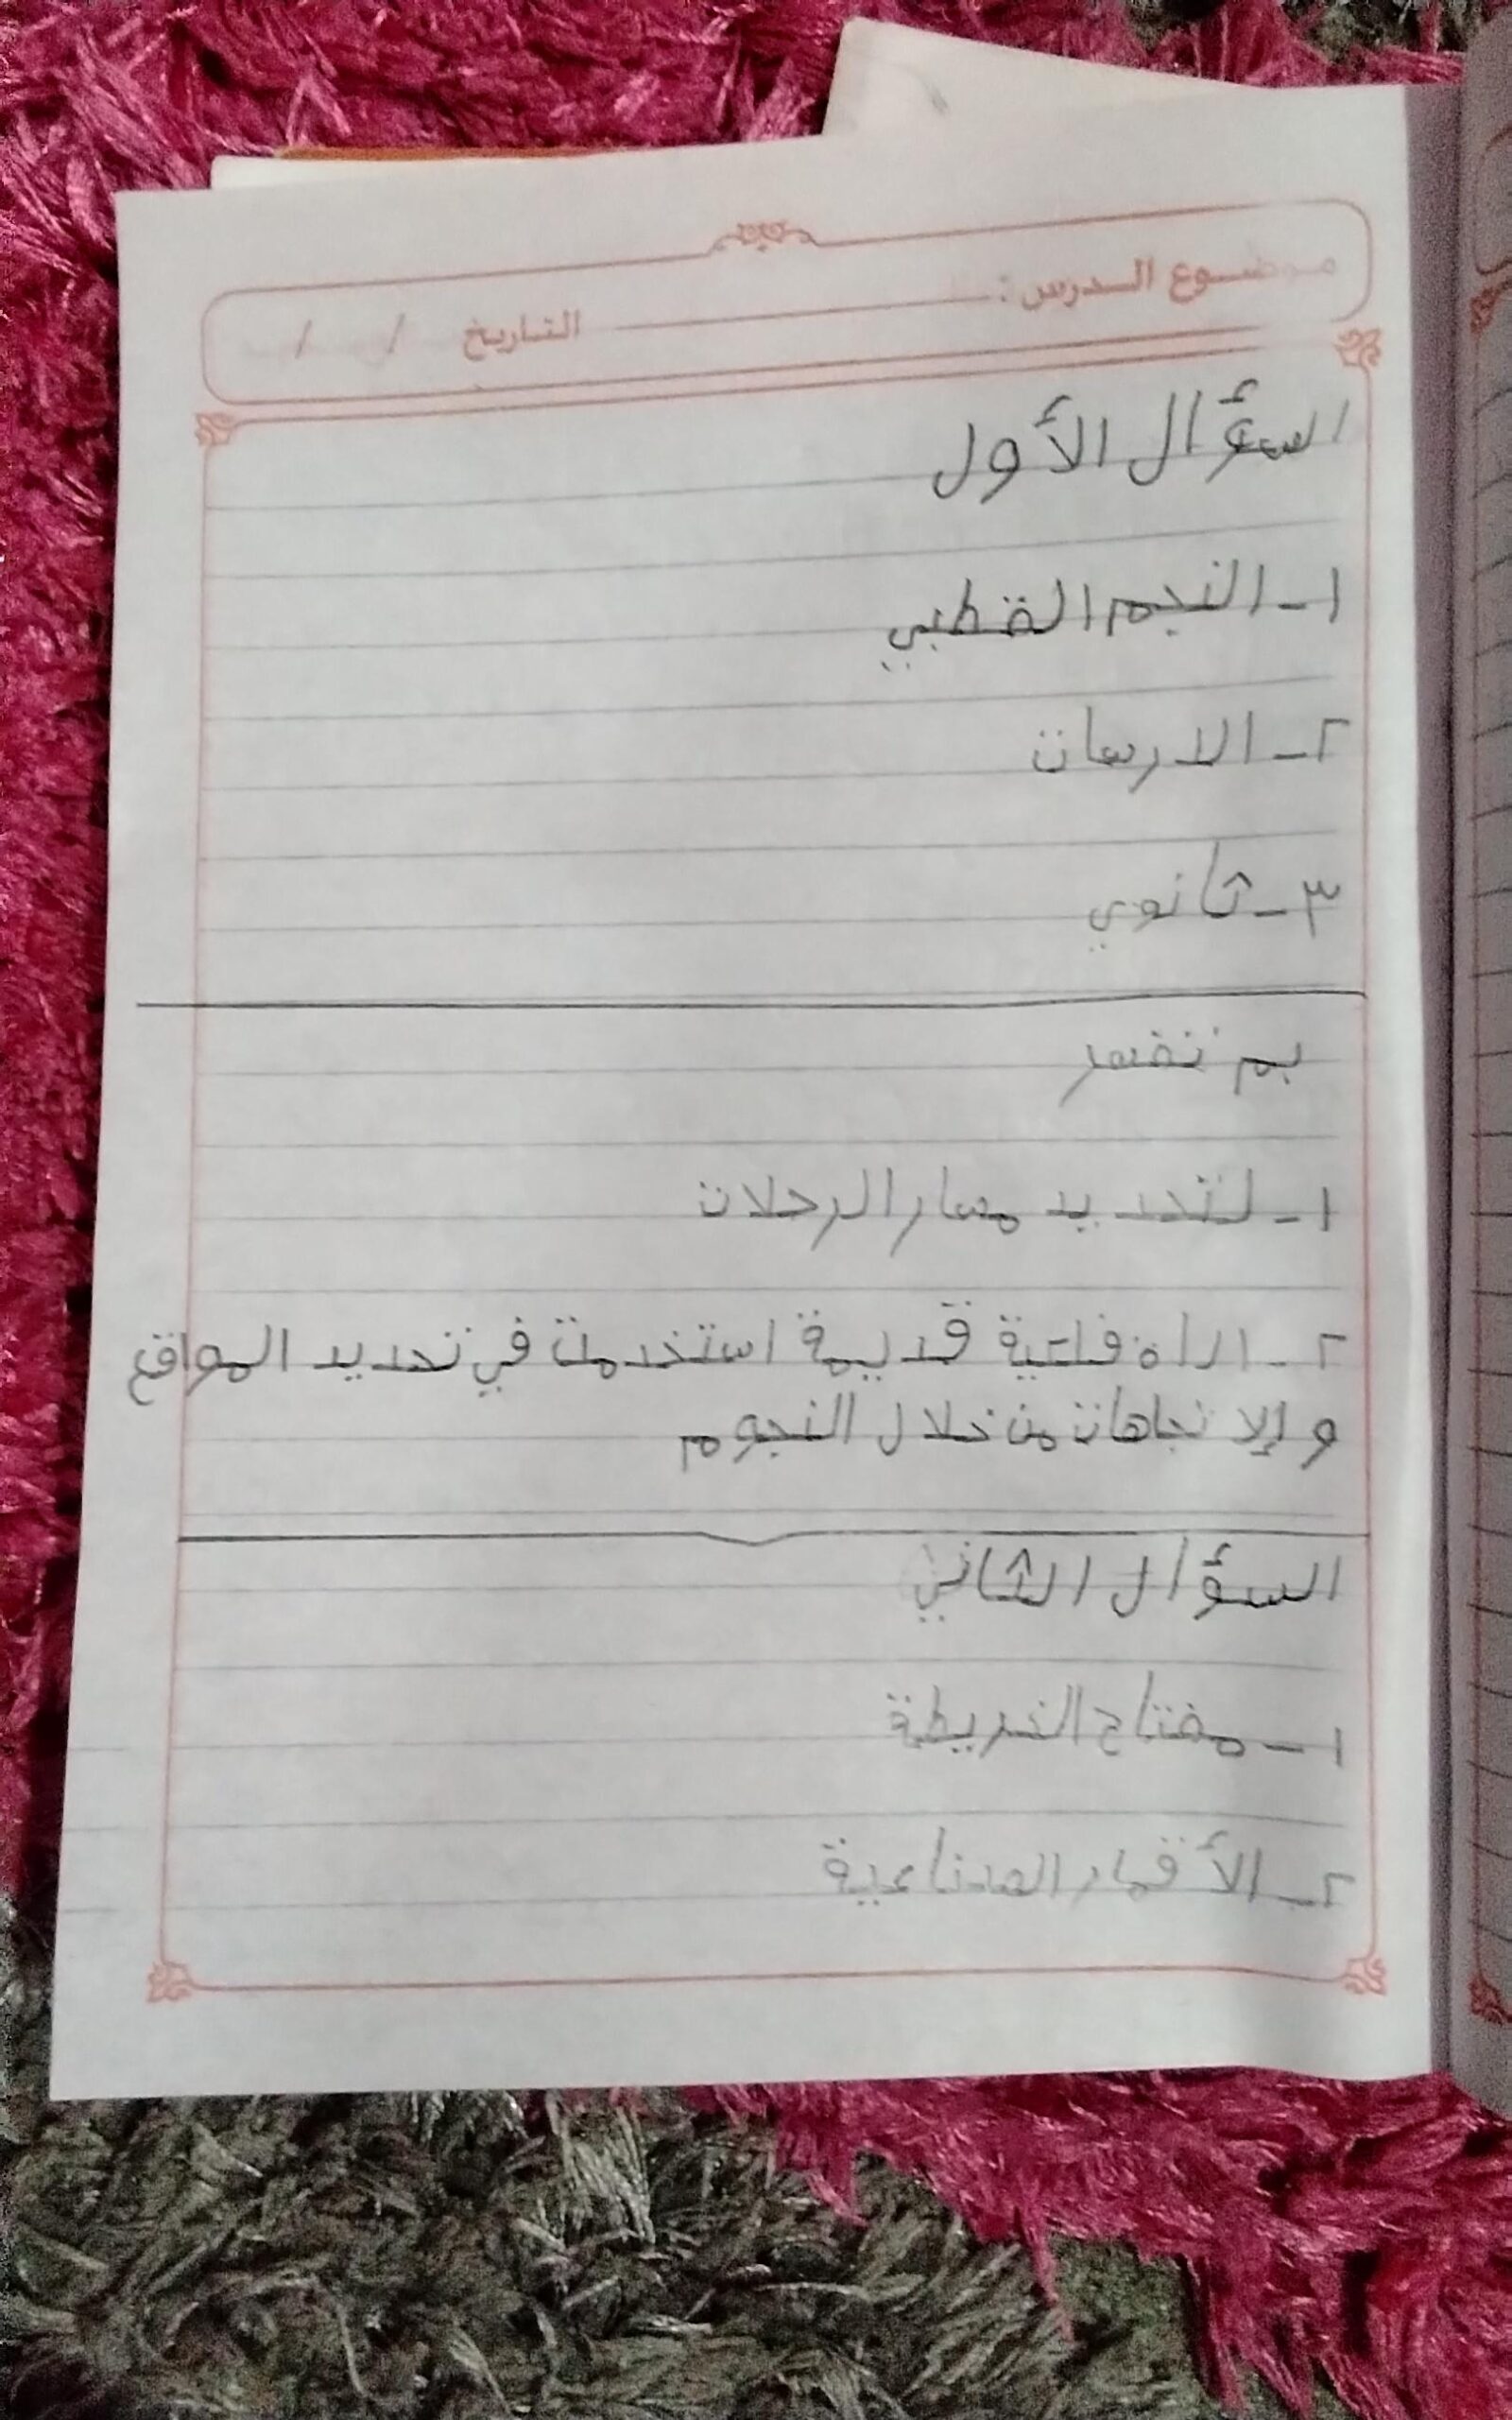 موضوع الدرس : التاريخ / /
السؤال الأول
١- النجم القطبي
٢- الارسات
٣- ثانوي
بم نفسر
١- لتحديد مسار الرحلات
٢- اداه فلكية قديمة استخدمت في تحديد المواقع
و إلا تجاهات من خلال النجوم
السؤال الثاني
١- مفتاح الخريطة
٢- الأقمار الصناعية